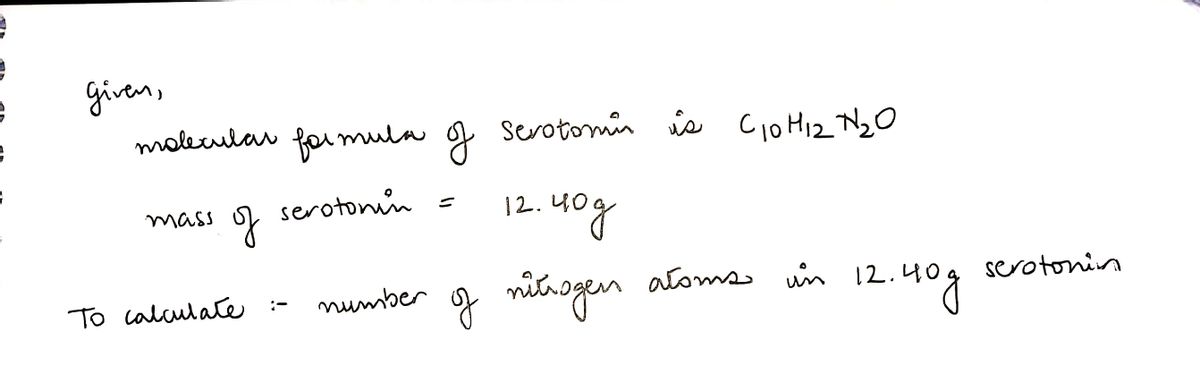 Given,
molecular formula of serotonin is C₁₀H₁₂N₂O
mass of serotonin = 12.40g
To calculate :- number of nitrogen atoms in 12.40g serotonin